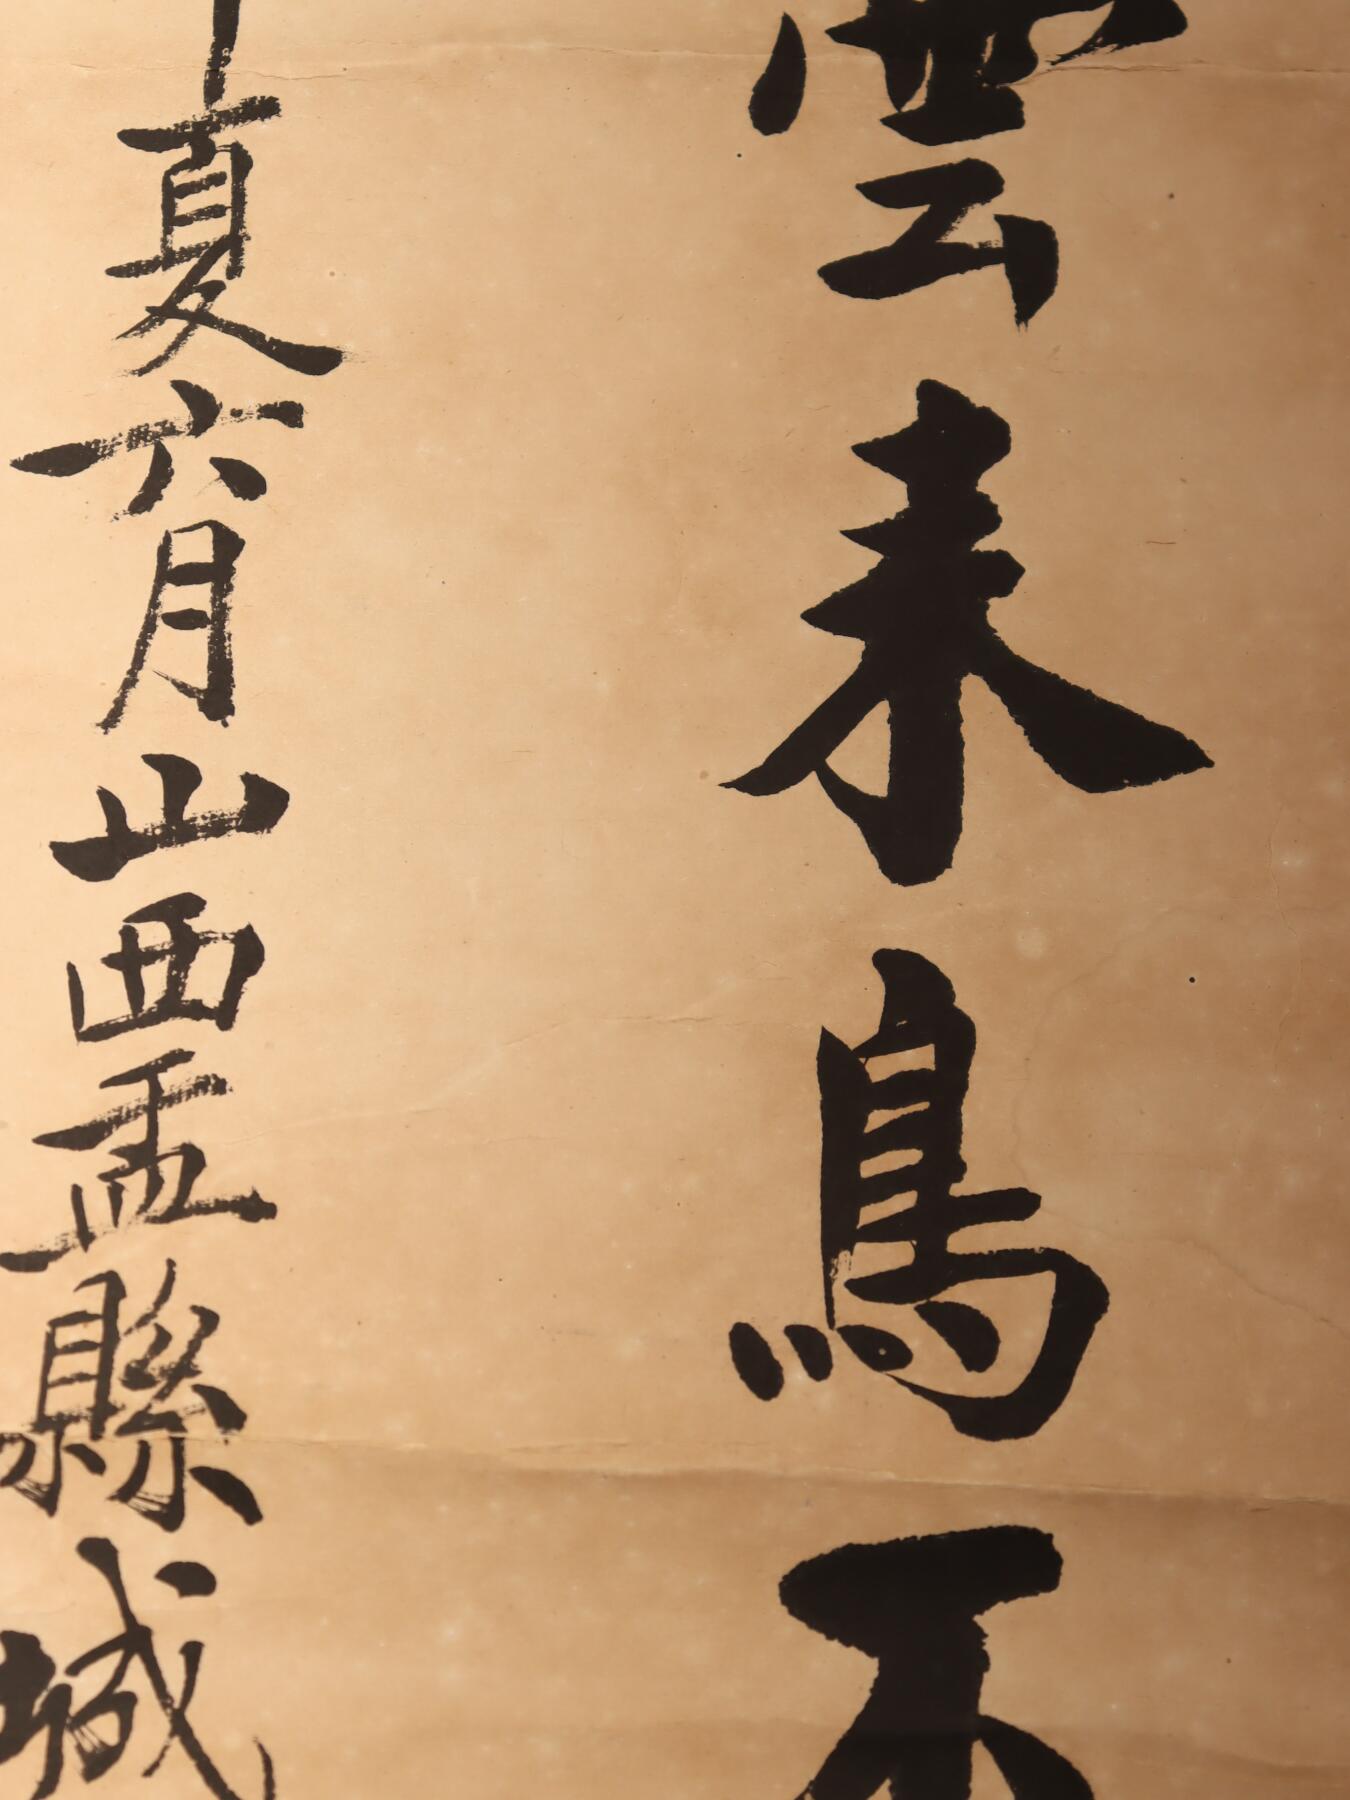 雲来鳥不
夏六月山西盂縣城